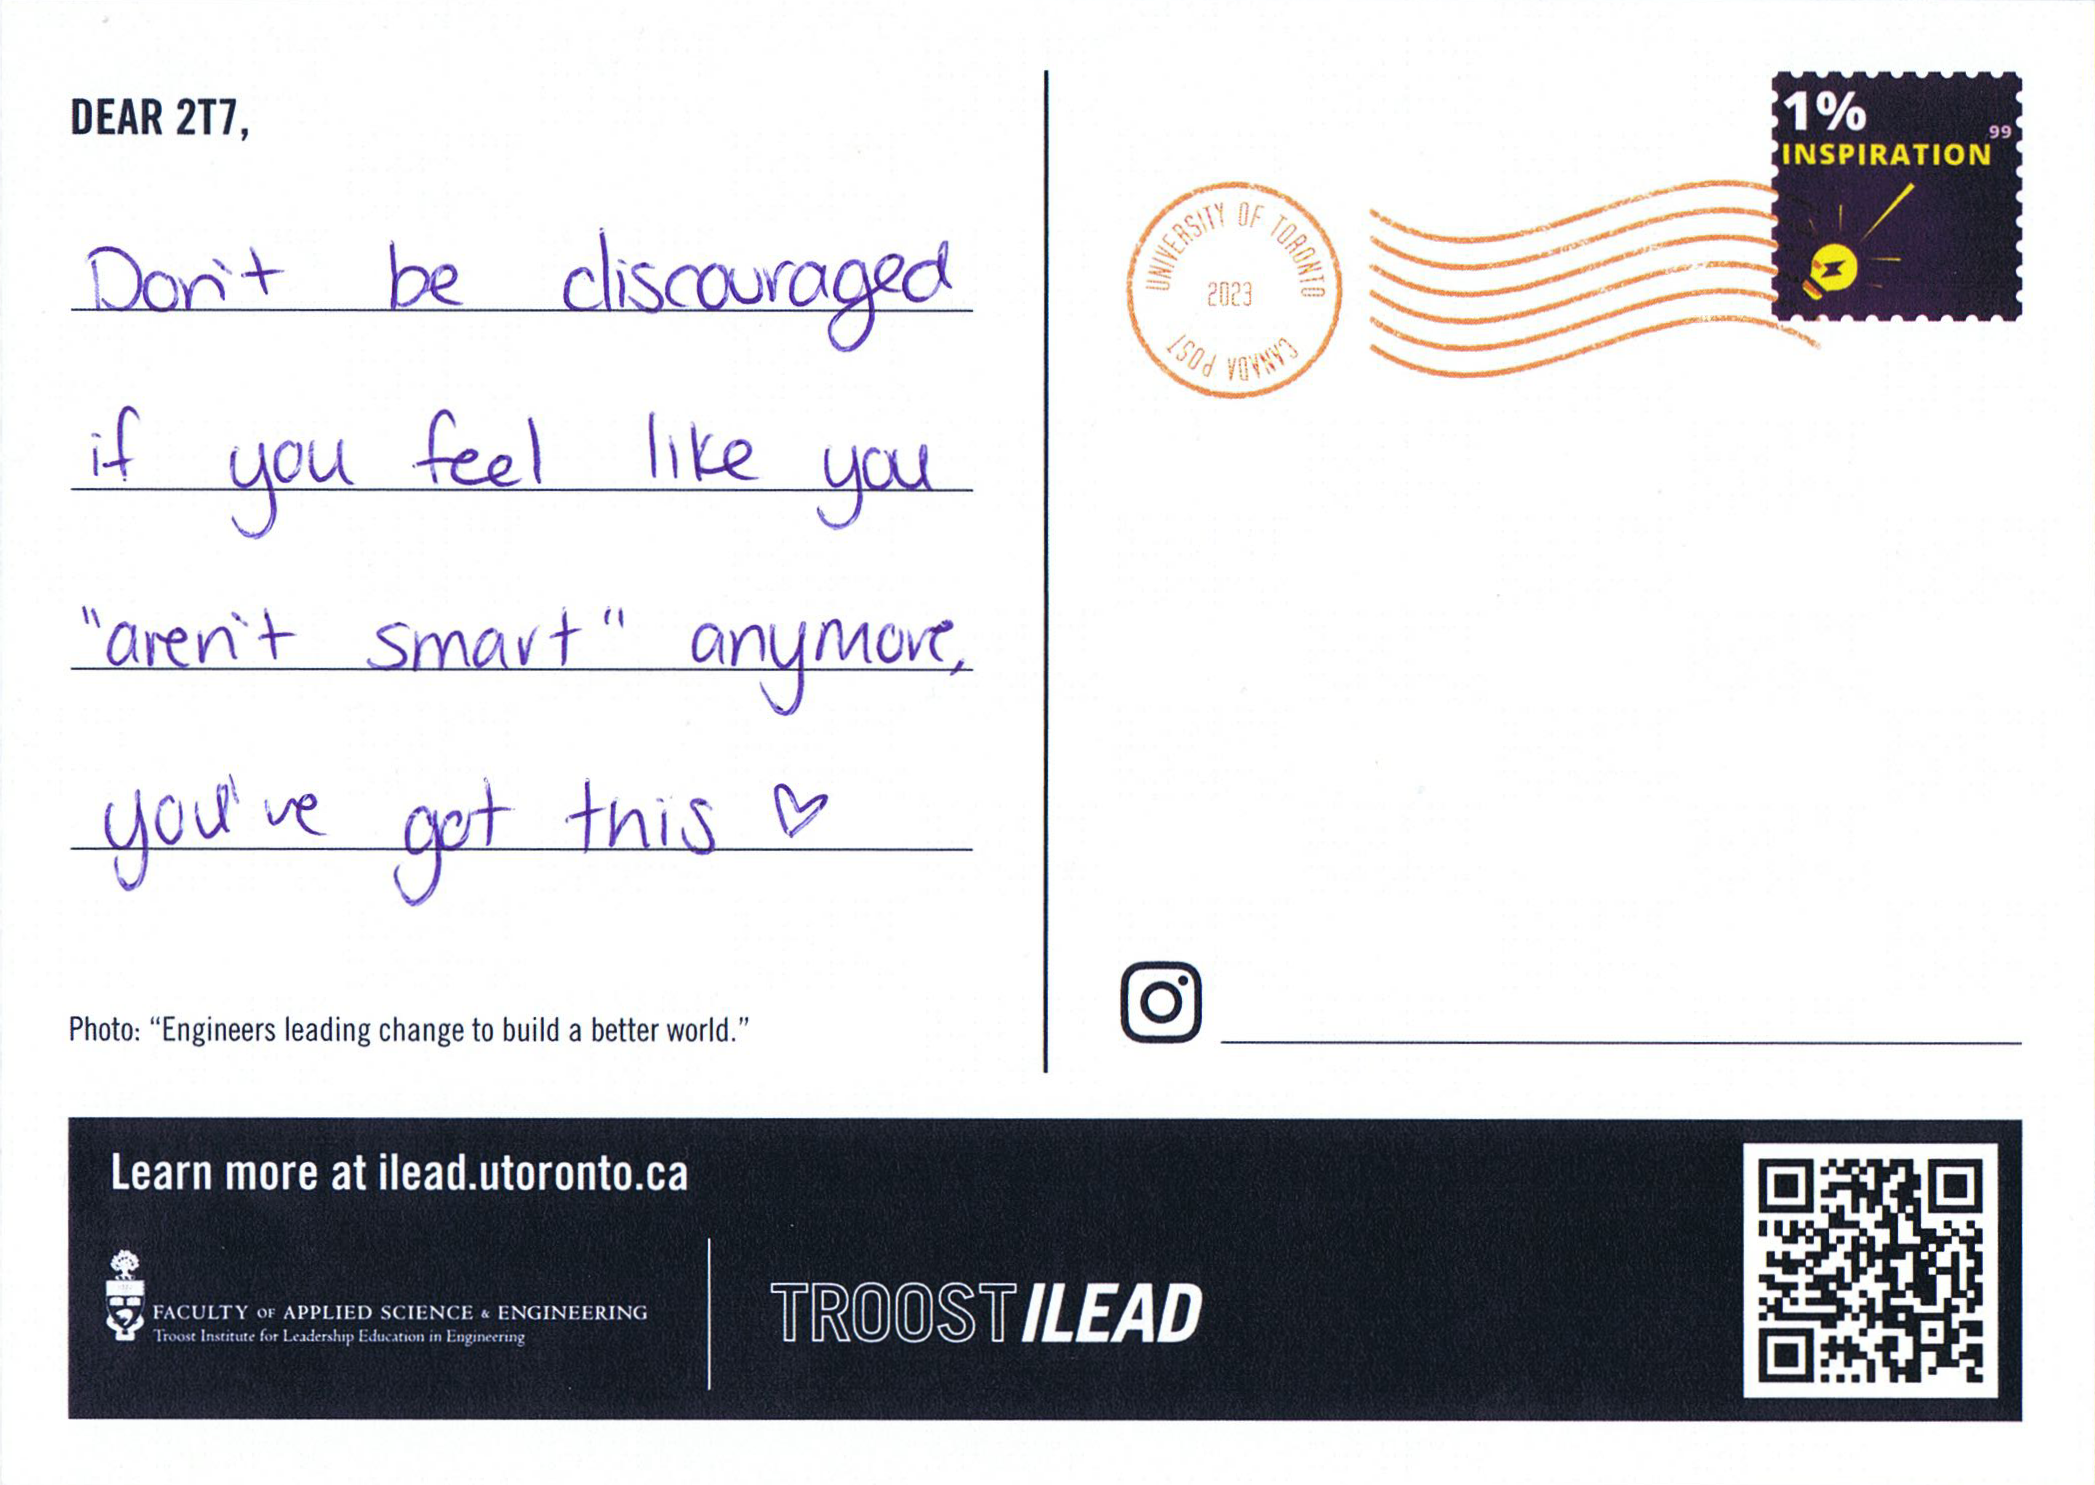 DEAR 2T7,
Don't be discouraged
if you feel like you
"aren't smart" anymore,
you've got this ♡
Photo: “Engineers leading change to build a better world.”
1%
99
INSPIRATION
UNIVERSITY OF TORONTO
2023
CANADA POST
Learn more at ilead.utoronto.ca
FACULTY OF APPLIED SCIENCE & ENGINEERING
Troost Institute for Leadership Education in Engineering
TROOST ILEAD